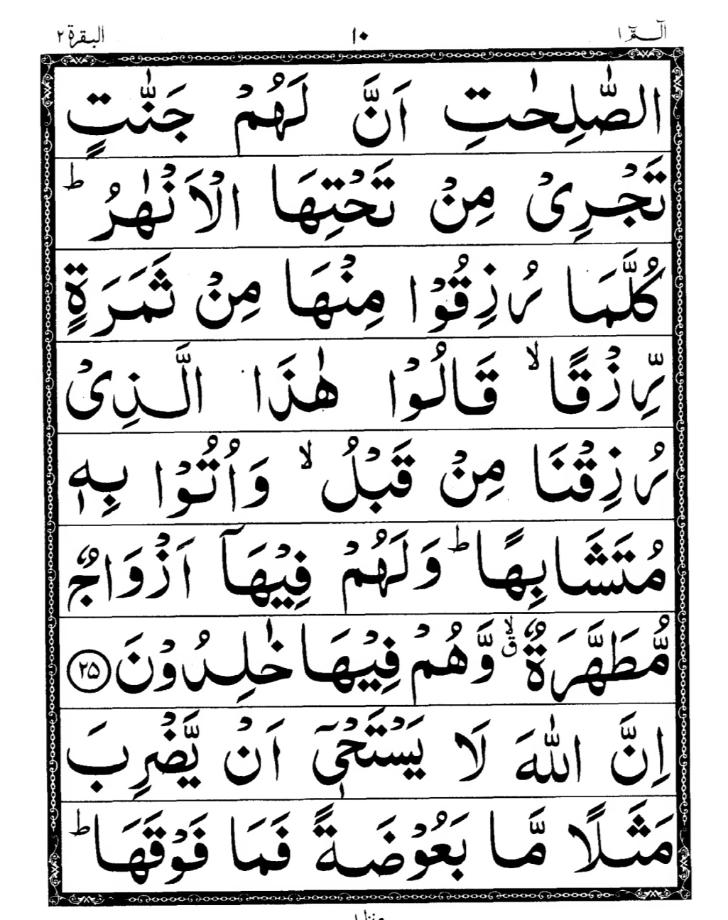 الۤـمّۤ ١ ١٠ البقرة ٢
الصّٰلِحٰتِ اَنَّ لَهُمْ جَنّٰتٍ
تَجْرِیْ مِنْ تَحْتِهَا الْاَنْهٰرُ ؕ
كُلَّمَا رُزِقُوْا مِنْهَا مِنْ ثَمَرَةٍ
رِّزْقًا ۙ قَالُوْا هٰذَا الَّذِیْ
رُزِقْنَا مِنْ قَبْلُ ۙ وَاُتُوْا بِهٖ
مُتَشَابِهًا ؕ وَلَهُمْ فِیْهَاۤ اَزْوَاجٌ
مُّطَهَّرَةٌ ۙۗ وَّهُمْ فِیْهَا خٰلِدُوْنَ ﴿٢٥﴾
اِنَّ اللّٰهَ لَا یَسْتَحْیٖۤ اَنْ یَّضْرِبَ
مَثَلًا مَّا بَعُوْضَةً فَمَا فَوْقَهَا ؕ
منزل ١